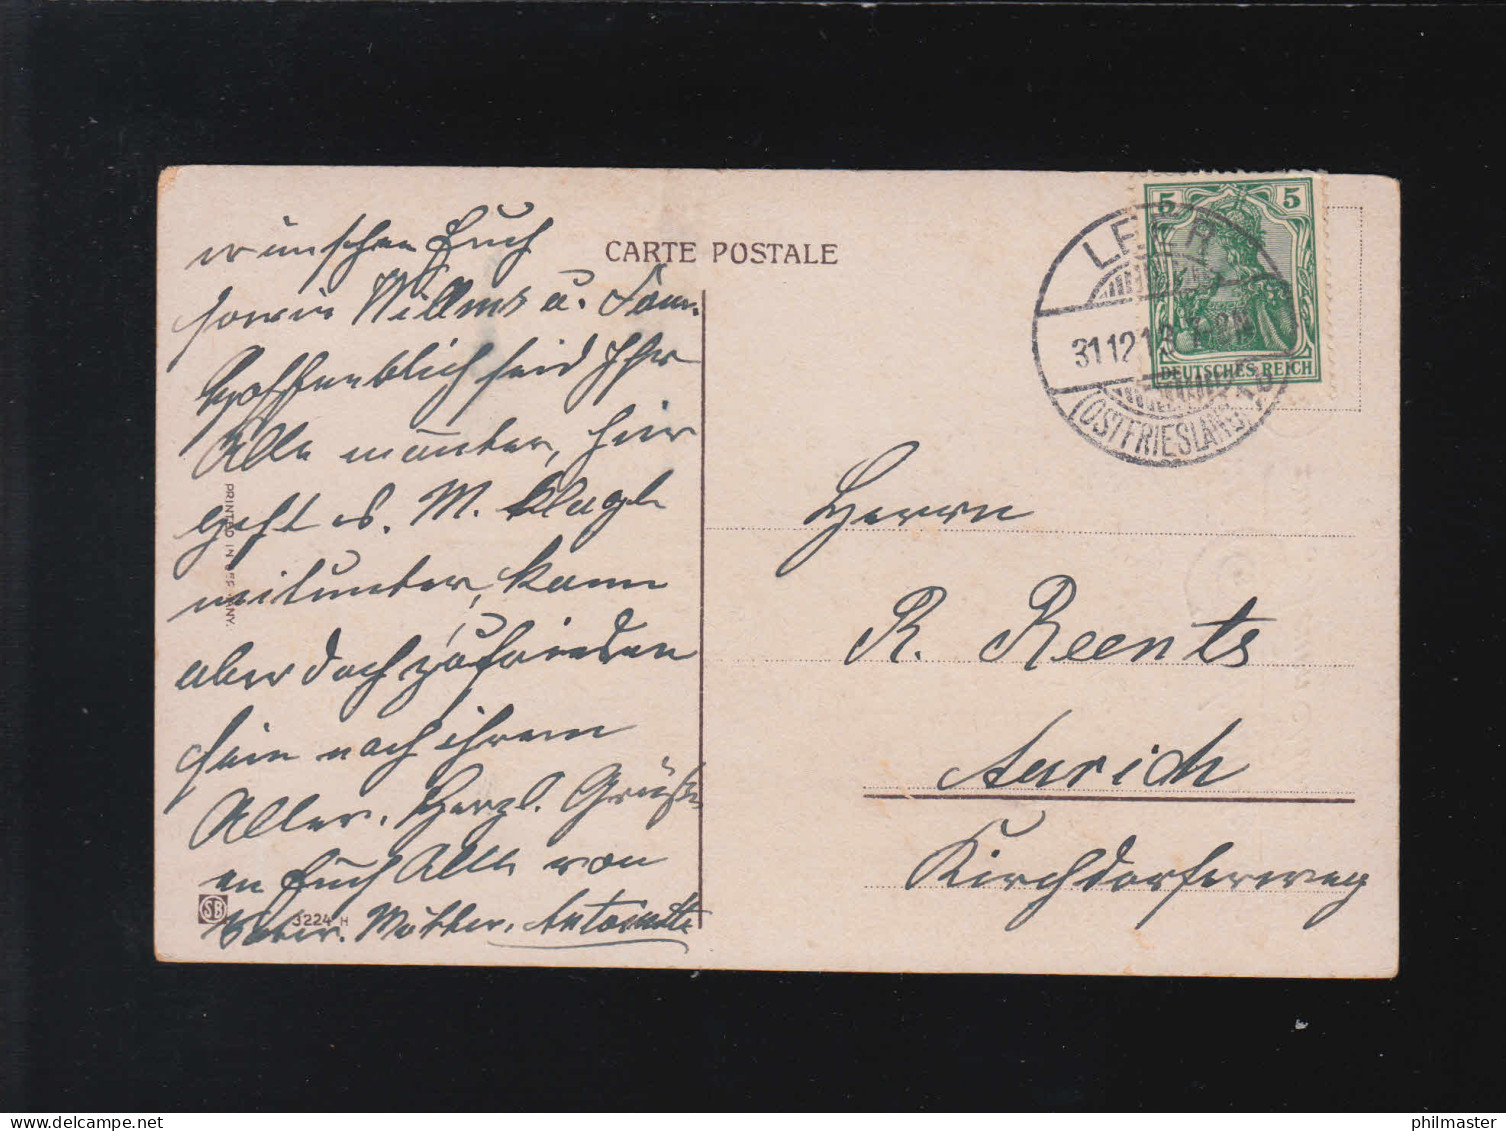 wünschen Euch
sowie Willms u. Fam.
Hoffentlich seid Ihr
Alle munter, hier
geht es. M. klagt
mitunter, kann
aber doch zufrieden
sein nach ihrem
Alter. Herzl. Grüße
an Euch Alle von
Vater. Mutter. Antoinette
PRINTED IN GERMANY.
SB
3224 H
CARTE POSTALE
5 5
DEUTSCHES REICH
LEER
31 12 1
(OSTFRIESLAND)
Herrn
R. Reents
Aurich
Kirchdorferweg
philmaster